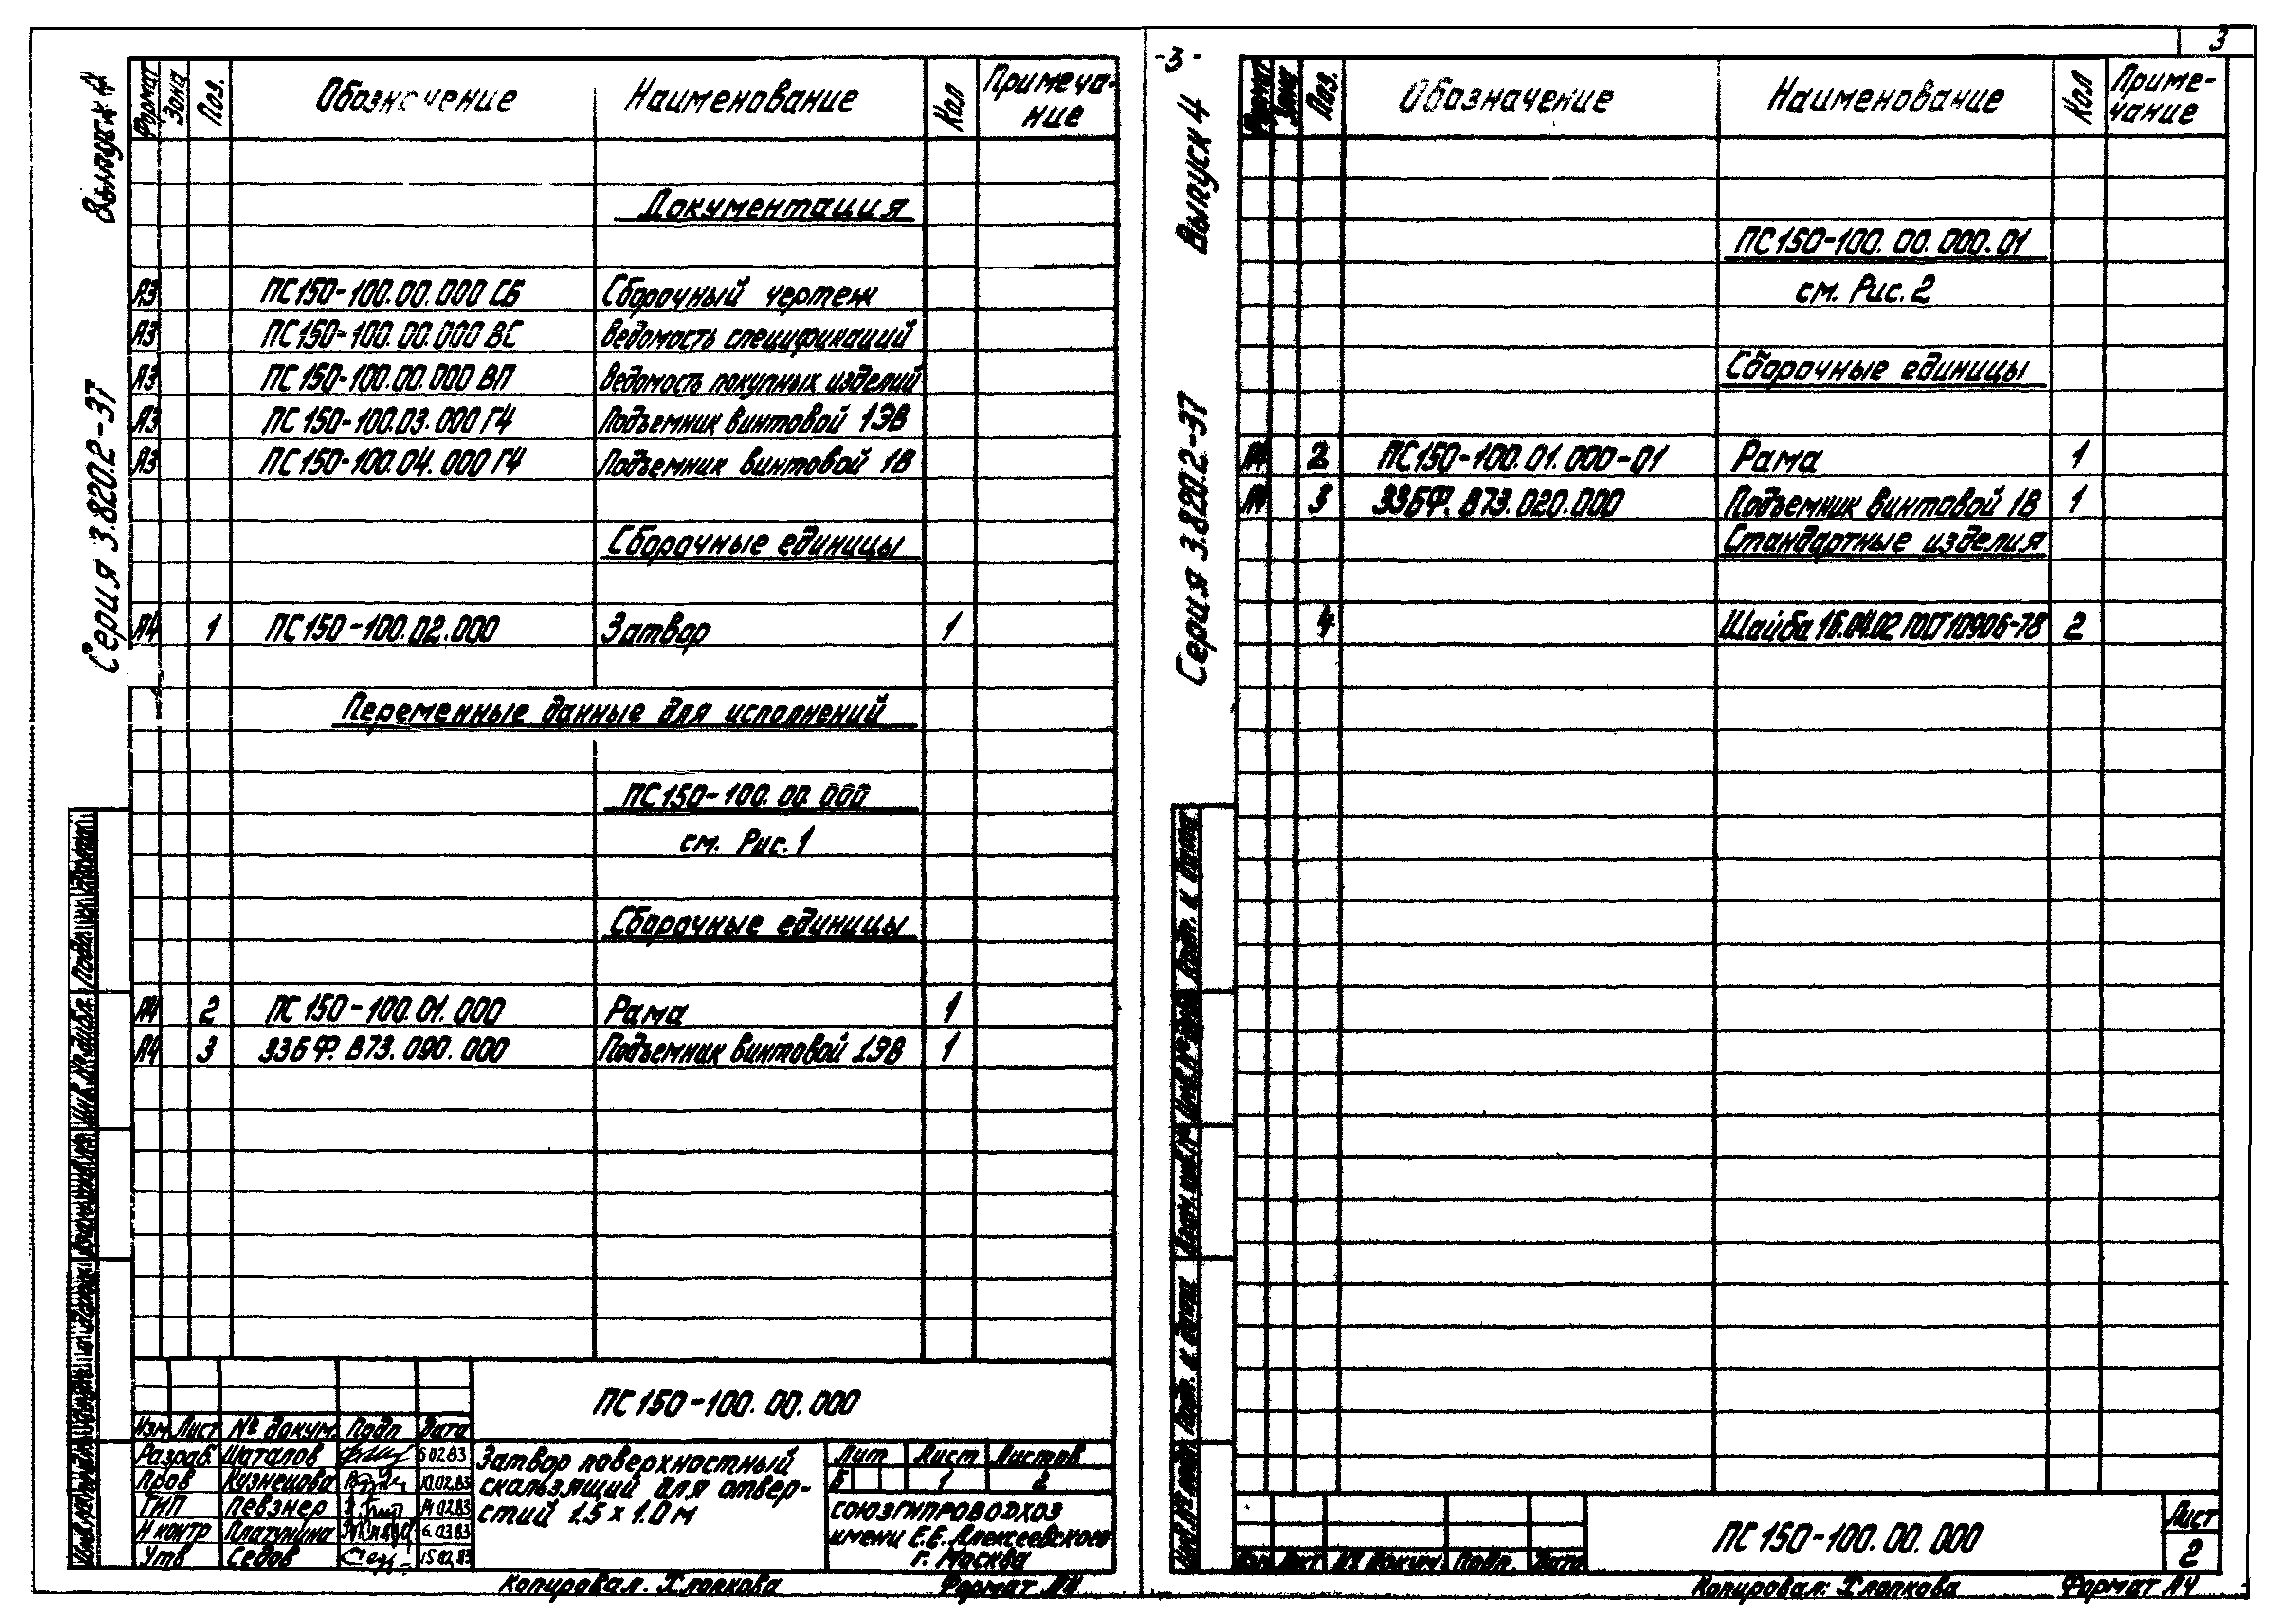 3
-3-
Выпуск 4
Серия 3.820.2-37
Формат Зона Поз. Обозначение Наименование Кол Примеча-
ние
Документация
А3 ПС150-100.00.000 СБ Сборочный чертеж
А3 ПС150-100.00.000 ВС Ведомость спецификаций
А3 ПС150-100.00.000 ВП Ведомость покупных изделий
А3 ПС150-100.03.000 ГЧ Подъемник винтовой 1ЭВ
А3 ПС150-100.04.000 ГЧ Подъемник винтовой 1В
Сборочные единицы
А4 1 ПС150-100.02.000 Затвор 1
Переменные данные для исполнений
ПС150-100.00.000
см. Рис. 1
Сборочные единицы
А4 2 ПС150-100.01.000 Рама 1
А4 3 33БФ.В73.090.000 Подъемник винтовой 1ЭВ 1
ПС150-100.00.000
Изм Лист № докум. Подп Дата
Разраб. Шаталов 02.83
Пров Кузнецова 10.02.83
ГИП Певзнер 14.02.83
Н контр Платунина 6.03.83
Утв Седов 15.02.83
Затвор поверхностный
скользящий для отвер-
стий 1.5 × 1.0 м
Лит Лист Листов
Б 1 2
СОЮЗГИПРОВОДХОЗ
имени Е.Е. Алексеевского
г. Москва
Копировал. Хлопкова Формат А4
Выпуск 4
Серия 3.820.2-37
Формат Зона Поз. Обозначение Наименование Кол Приме-
чание
ПС150-100.00.000.01
см. Рис. 2
Сборочные единицы
А4 2 ПС150-100.01.000-01 Рама 1
А4 3 33БФ.В73.020.000 Подъемник винтовой 1В 1
Стандартные изделия
4 Шайба 16.04.02 ГОСТ 10906-78 2
Инв.№ подл. Подп. и дата Взам.инв.№ Инв.№ дубл. Подп. и дата
Изм Лист № докум. Подп. Дата
ПС150-100.00.000
Лист
2
Копировал: Хлопкова Формат А4